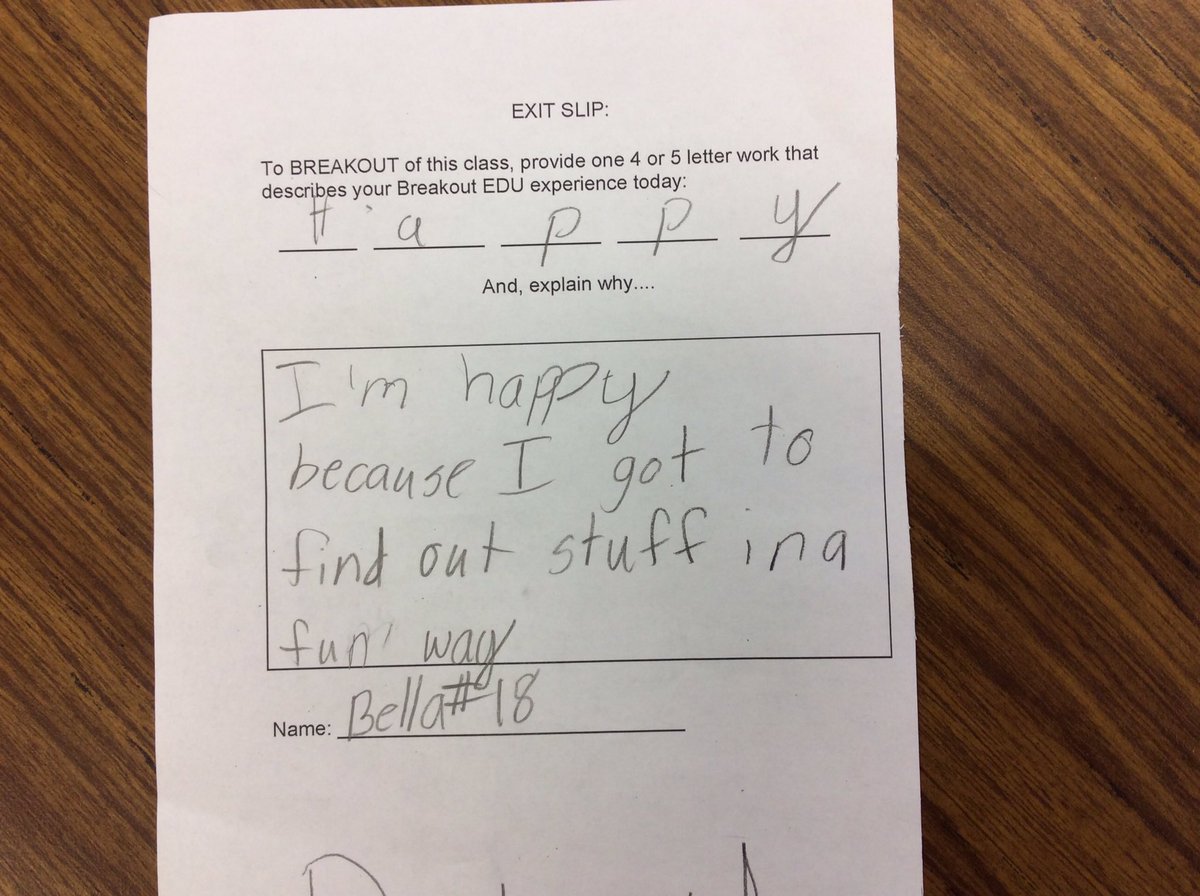 EXIT SLIP:
To BREAKOUT of this class, provide one 4 or 5 letter work that
describes your Breakout EDU experience today:
H a p p y
And, explain why....
I'm happy
because I got to
find out stuff in a
fun way
Name: Bella #18